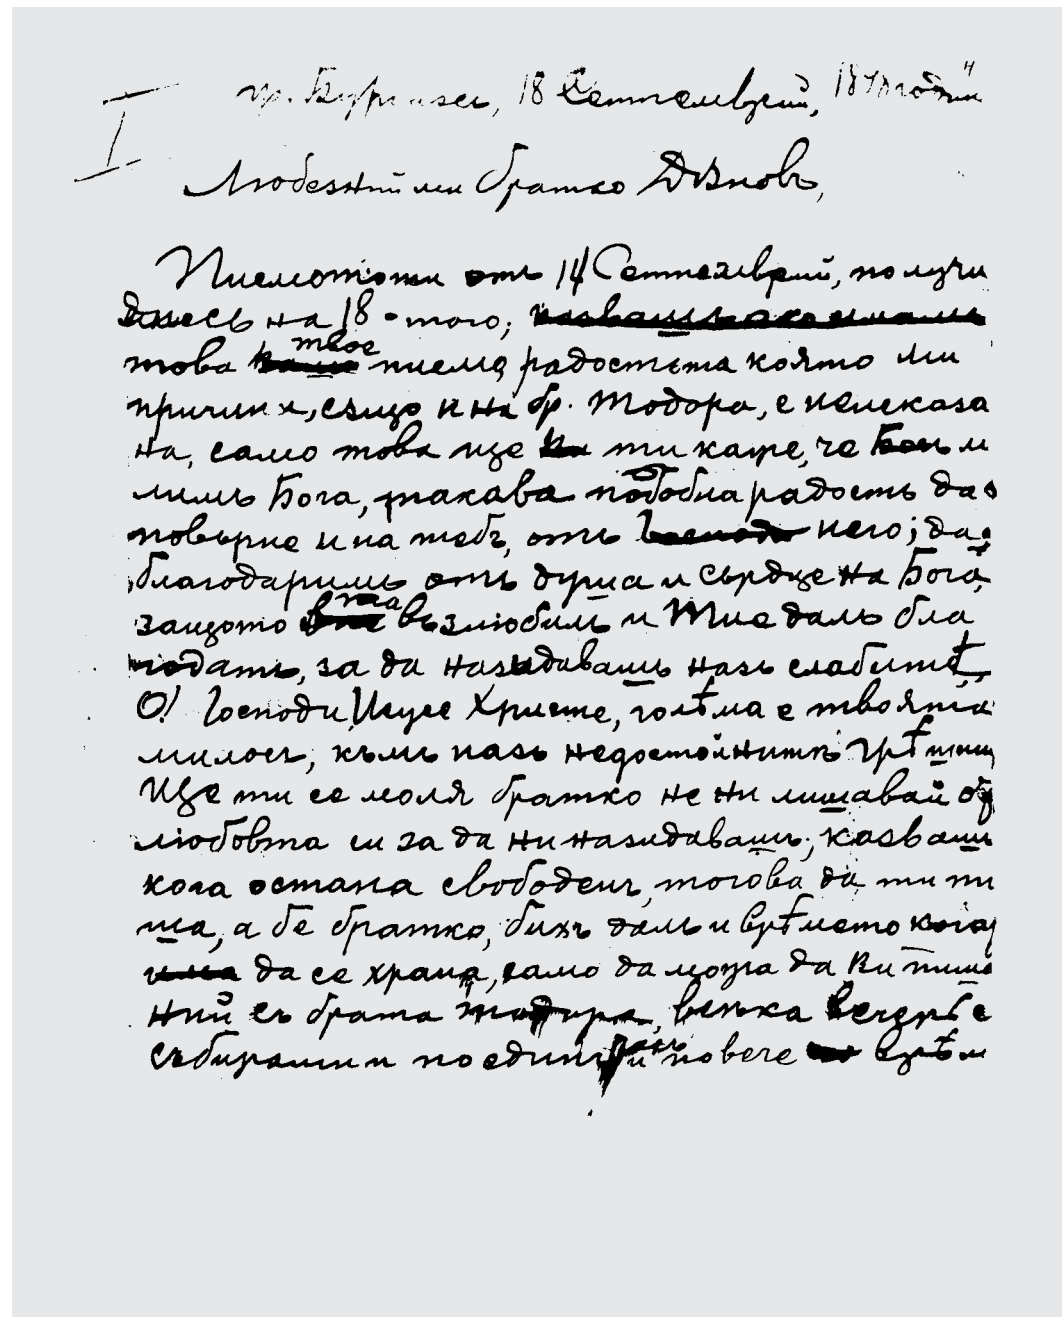 I
гр. Бургазъ, 18 Септемврий, 1898 годин
Любезний ми братко Дѣновъ,
Писмототи отъ 14 Септемврий, получи
днесь на 18-того;
това твое писмо, радостьта която ми
причини, също и на бр. Тодора, е неисказа
на, само това ще ти каже, че м
лимъ Бога, такава подобна радость да
повърне и на тебъ, отъ него; да
благодаримъ отъ душа и сърдце на Бога,
защото та възлюбилъ и Тие далъ бла
годать, за да назидавашъ назь слабитѣ,
О! Господи Исусе Христе, голѣма е твоята
милость, къмъ назь недостойнитѣ грѣшни
Ще ти се моля братко не ни лишавай от
любовта си за да ни назидавашъ; казваш
кога остана свободенъ, тогова да ти пи
ша, а бе братко, бихъ далъ и врѣмето кога
да се храна, само да можа да Ви пиша
Ний съ брата Тодора, всѣка вечерь с
събирами и по единъ часъ и повече врѣм